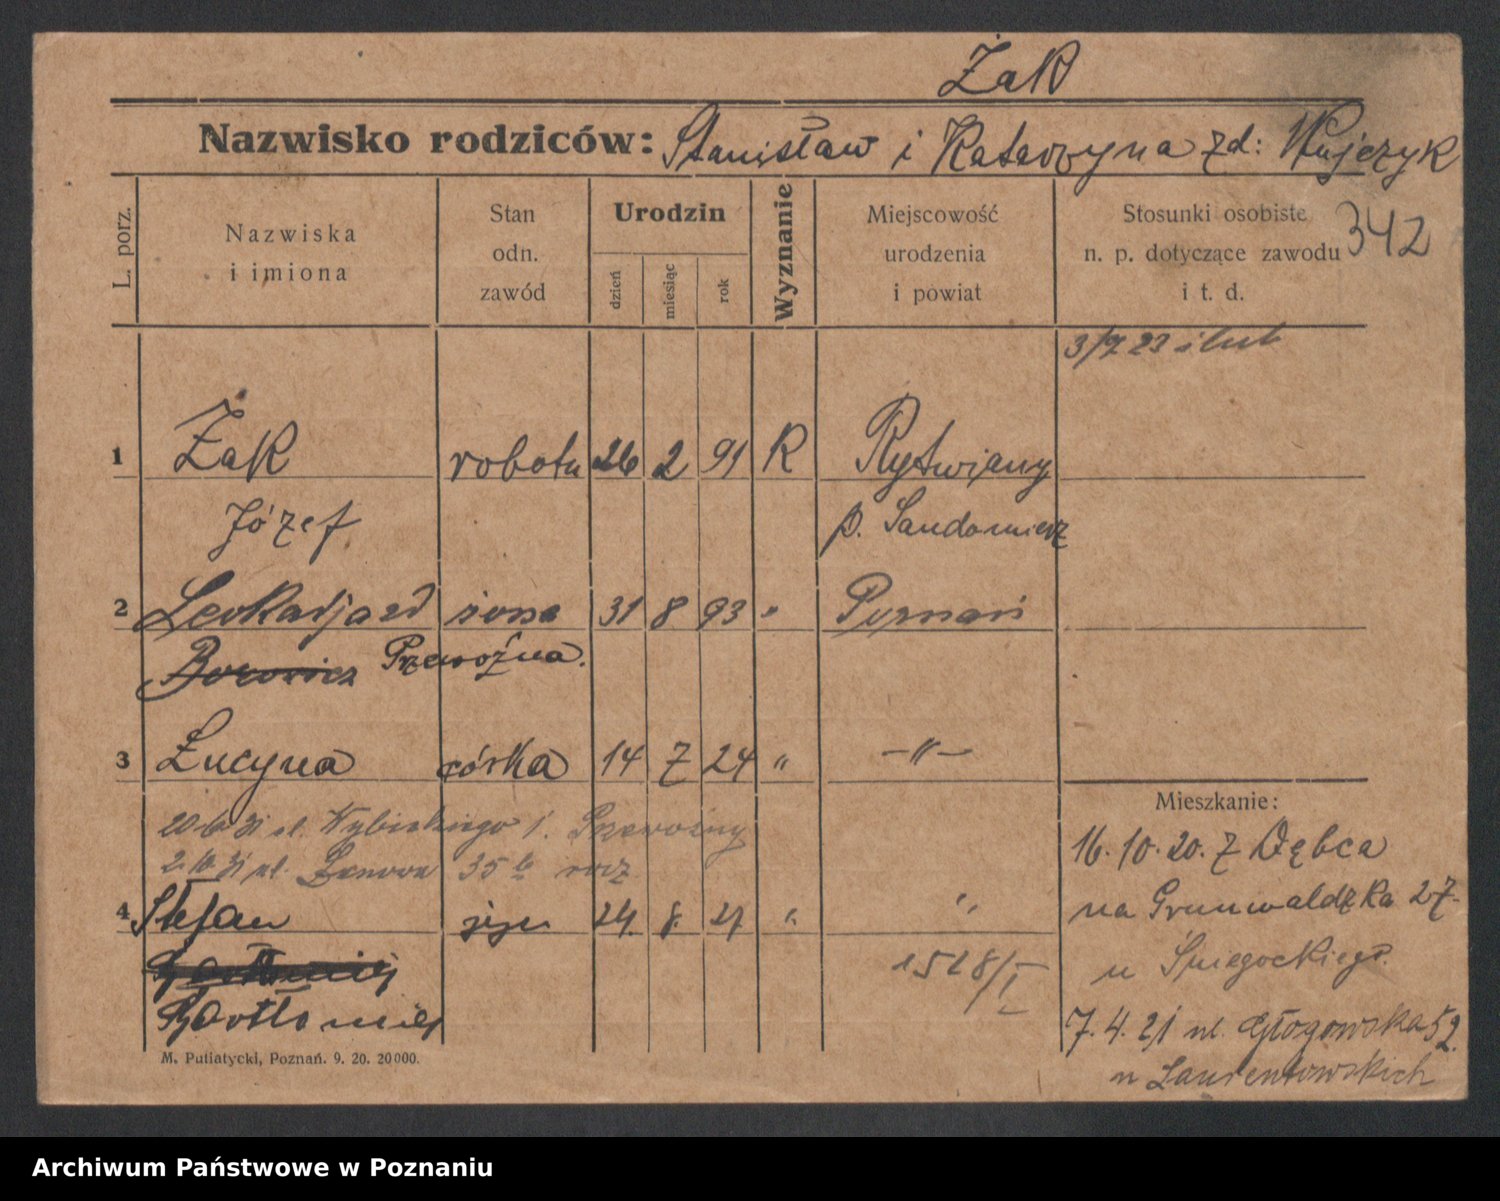 Żak
Nazwisko rodziców: Stanisław i Katarzyna zd: Wujczyk
L. porz.
Nazwiska
i imiona
Stan
odn.
zawód
Urodzin
dzień
miesiąc
rok
Wyznanie
Miejscowość
urodzenia
i powiat
Stosunki osobiste
n. p. dotyczące zawodu
i t. d.
342
3/7 23 ślub
1 Żak robotn 26 2 91 R Rytwiany
Józef p. Sandomierz
2 Leokadja zd żona 31 8 93 " Poznań
Borowicz Przewoźna.
3 Łucyna córka 14 7 24 " -"-
20 6 31 ul. Wybickiego 1. Przewoźny
2.10.31 ul. 35
4 Stefan 24. 8. 21 " "
Bartłomiej
Bartłomiej
1518/I
Mieszkanie:
16. 10. 20. z Dębca
na Grunwaldzka 27.
u Śniegockiego.
7. 4. 21 ul. Głogowska 52.
u Laurentowskich
M. Putiatycki, Poznań. 9. 20. 20000.
Archiwum Państwowe w Poznaniu